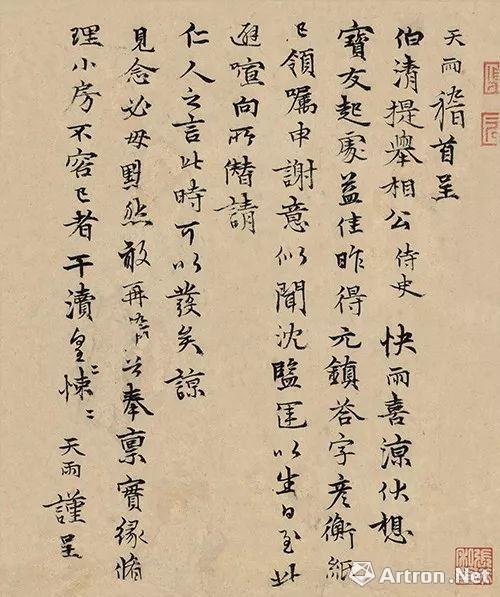 天雨稽首呈
伯清提舉相公侍史 快雨喜涼伏想
寶友起處益佳昨得元鎮答字彦衡紙
已領囑申謝意似聞沈監運以生日至此
避喧向所僣請
仁人之言此時可以發矣諒
見念必毋默然敢再啓 奉稟寶緣脩
理小房不容已者干瀆皇〻悚〻
天雨謹呈
Artron.Net